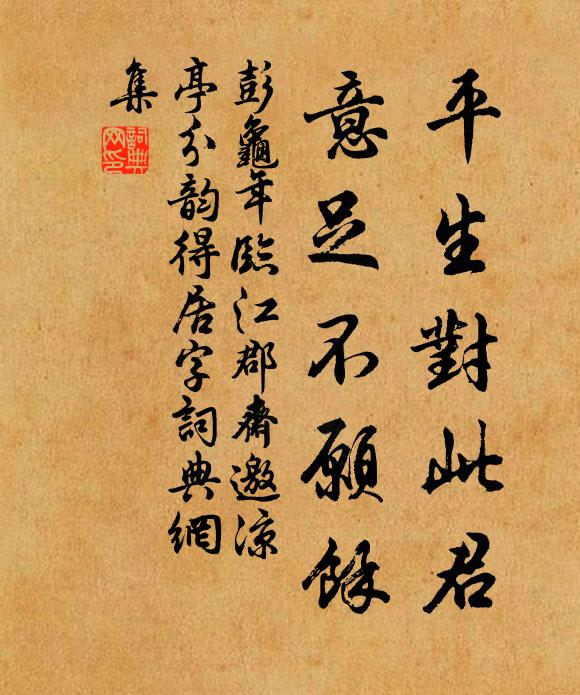 平生對此君
意足不願餘
彭龜年臨江郡齋邀涼
亭分韵得居字詞典網
集
詞典
网印